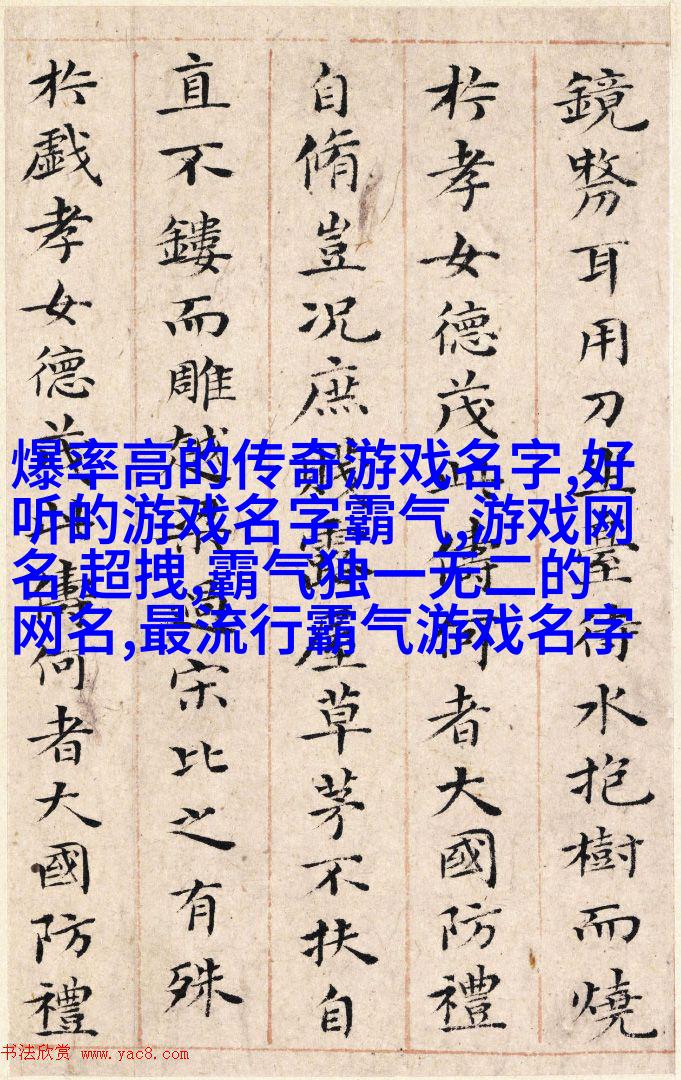 鏡剺耳用刀坐臺待水抱樹而燒
於孝女德茂此儔何者大國防禮
自脩豈況庶賤露屋草茅不扶自
直不鏤而雕越梁過宋比之有殊
於戲孝女德茂此儔何者大國防禮
爆率高的传奇游戏名字,好
听的游戏名字霸气,游戏网
名,超拽,霸气独一无二的
网名,最流行霸气游戏名字
书法欣赏 www.yac8.com